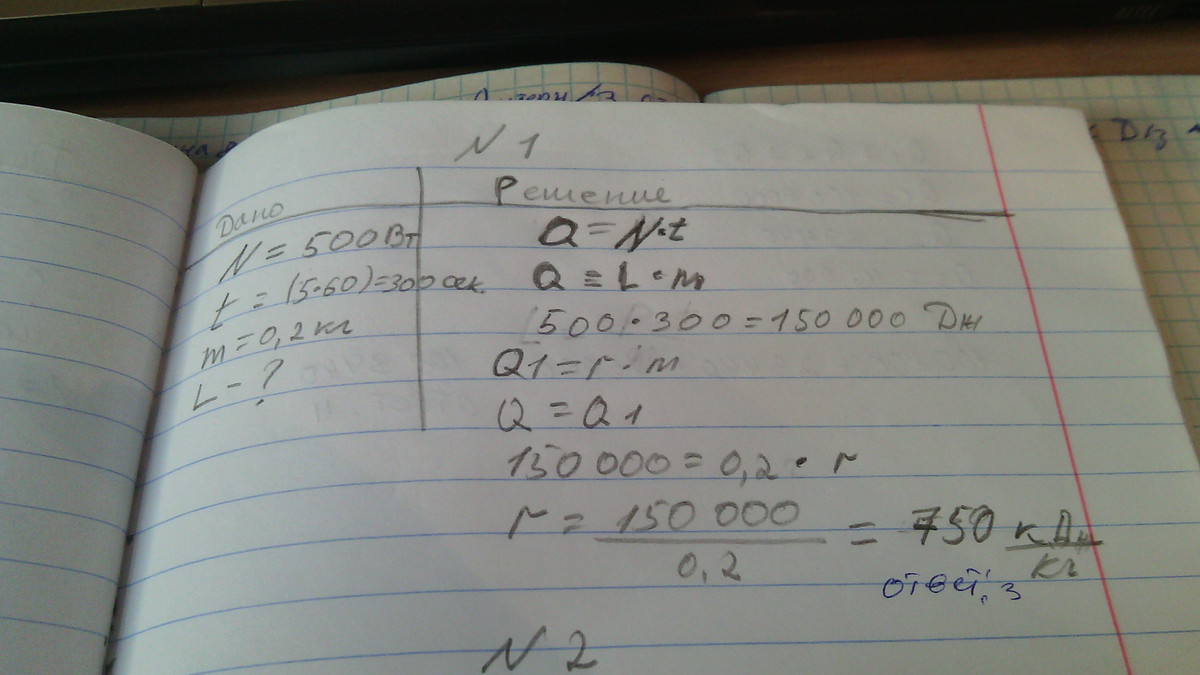 N 1
Дано
N = 500Вт
t = (5·60)=300 сек.
m = 0,2 кг
L - ?
Решение
Q = N·t
Q = L · m
500 · 300 = 150 000 Дж
Q1 = r · m
Q = Q1
150 000 = 0,2 · r
r = 150 000 / 0,2 = 750 кДж/кг
ответ: 3
N 2